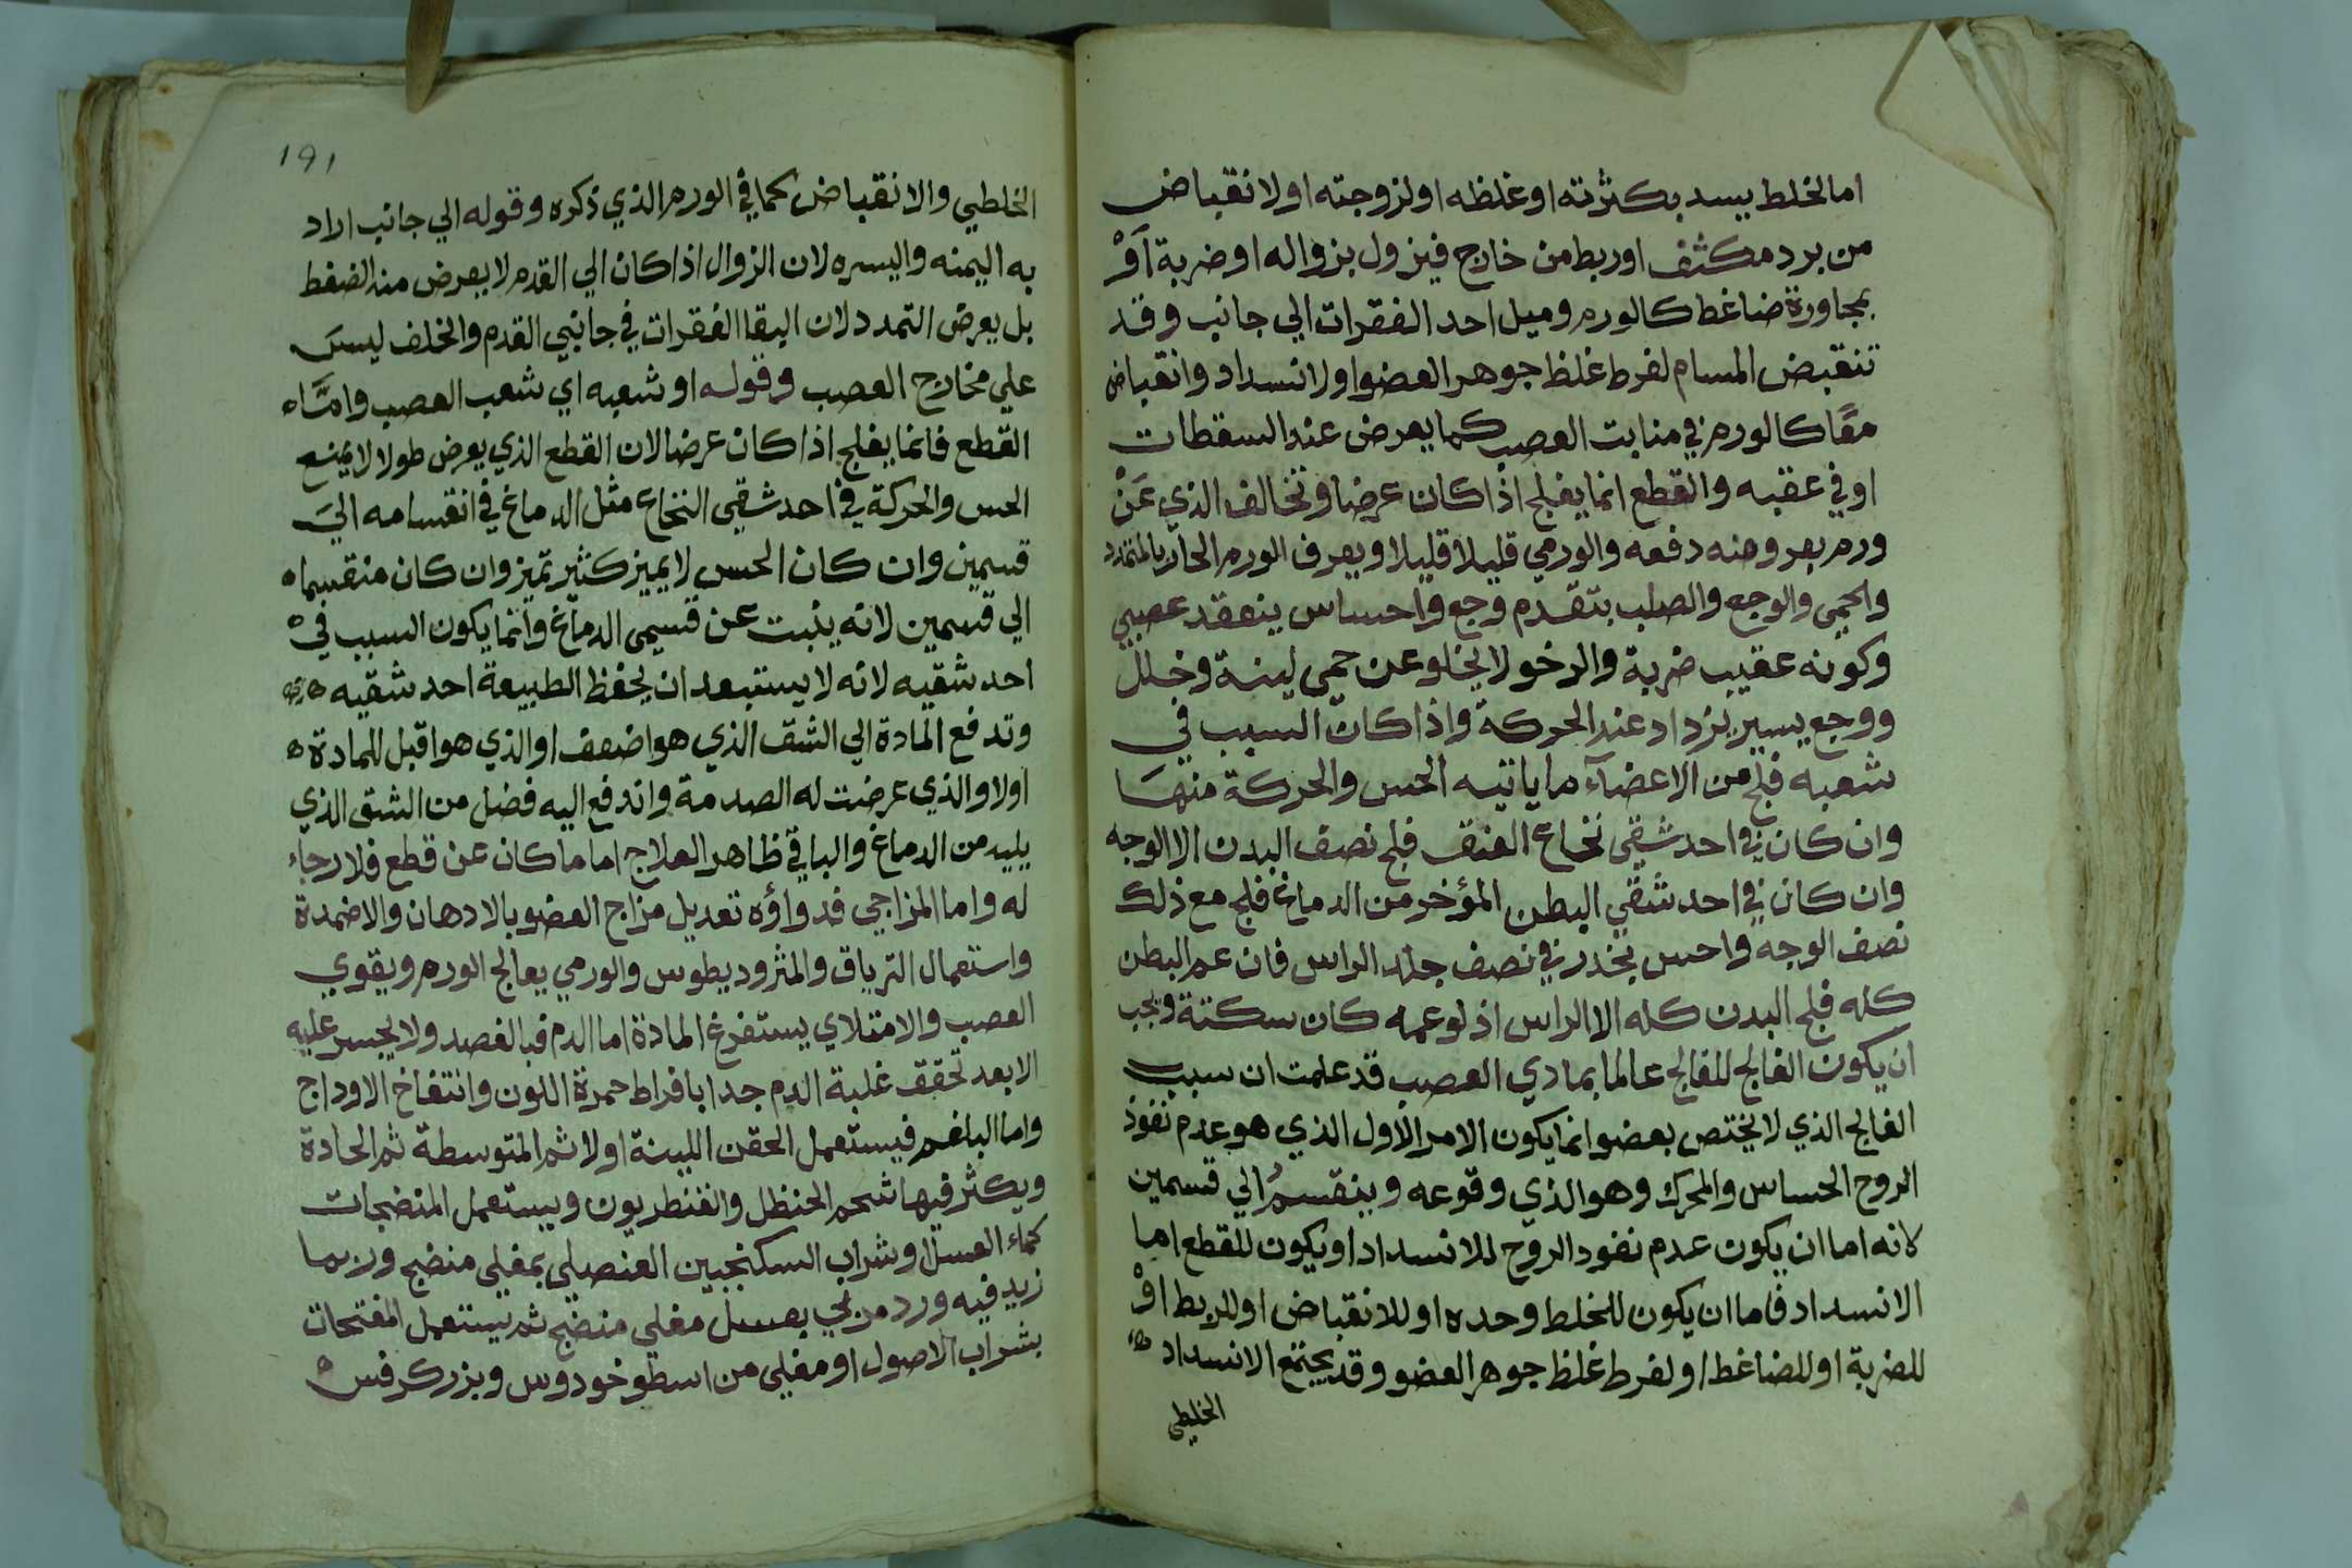 اما لخلط يسد بكثرته او غلظه او لزوجته او لانقباض
من برد مكثف او ربط من خارج فيزول بزواله او ضربة اَوْ
بمجاورة ضاغط كالورم وميل احد الفقرات الي جانب وقد
تنقبض المسام لفرط غلظ جوهر العضو او لانسداد وانقباض
معًا كالورم في منابت العصب كما يعرض عند السقطات
او في عقبه والقطع انما يفلج اذا كان عرضا وتخالف الذي عَنْ
ورم بعروضه دفعه والورمي قليلا قليلا ويعرف الورم الحار بالتمدد
والحمي والوجع والصلب بتقدم وجع واحساس ينعقد عصبي
وكونه عقيب ضربة والرخو لا يخلو عن حمي لينة وخلل
ووجع يسير يزداد عند الحركة واذا كان السبب في
شعبه فلج من الاعضآء ما ياتيه الحس والحركة منهَا
وان كان في احد شقي نخاع العنق فلج نصف البدن الا الوجه
وان كان في احد شقي البطن المؤخر من الدماغ فلج مع ذلك
نصف الوجه واحس بخدر في نصف جلد الراس فان عم البطن
كله فلج البدن كله الا الراس اذ لو عمه كان سكتة ويجب
ان يكون الفالج للفالج عالما بمادي العصب قد علمت ان سبب
الفالج الذي لا يختص بعضو انما يكون الامر الاول الذي هو عدم نفوذ
الروح الحساس والمحرك وهو الذي وقوعه وينقسمُ الي قسمين
لانه اما ان يكون عدم نفود الروح للانسداد او يكون للقطع اما
الانسداد فاما ان يكون للخلط وحده او للانقباض او للربط اوْ
للضربة او للضاغط او لفرط غلظ جوهر العضو وقد يجتمع الانسداد
الخلطي
١٩١
الخلطي والانقباض كما في الورم الذي ذكره وقوله الي جانب اراد
به اليمنه واليسره لان الزوال اذا كان الي القدم لا يعرض منه الضغط
بل يعرض التمدد لان اليقا الفقرات في جانبي القدم والخلف ليسَ
علي مخارج العصب وقوله او شعبه اي شعب العصب وامَّا
القطع فانما يفلج اذا كان عرضا لان القطع الذي يعرض طولا لا يمنع
الحس والحركة في احد شقي النخاع مثل الدماغ في انقسامه اليَ
قسمين وان كان الحس لا يميز كثير تميز وان كان منقسما
الي قسمين لانه ينبت عن قسيمي الدماغ وانما يكون السبب فيْ
احد شقيه لانه لا يستبعد ان يحفظ الطبيعة احد شقيه
وتدفع المادة الي الشق الذي هو اضعف او الذي هو اقبل للمادة
اولا والذي عرضت له الصدمة واندفع اليه فضل من الشق الذي
يليه من الدماغ والباقي ظاهر العلاج اما ما كان عن قطع فلا رجاء
له واما المزاجي فدواؤه تعديل مزاج العضو بالادهان والاضمدة
واستعمال الترياق والمثروديطوس والورمي يعالج الورم ويقوي
العصب والامتلاي يستفرغ المادة اما الدم فبالفصد ولا يجسر عليه
الا بعد تحقق غلبة الدم جدا بافراط حمرة اللون وانتفاخ الاوداج
واما البلغم فيستعمل الحقن اللينة اولا ثم المتوسطة ثم الحادة
ويكثر فيها شحم الحنظل والقنطريون ويستعمل المنضجات
كماء العسل او شراب السكنجبين العنصلي بمغلي منضج وربما
زيد فيه ورد مربي بعسل مغلي منضج ثم يستعمل المفتحات
بشراب الاصول او مغلي من اسطوخودوس وبزر كرفس